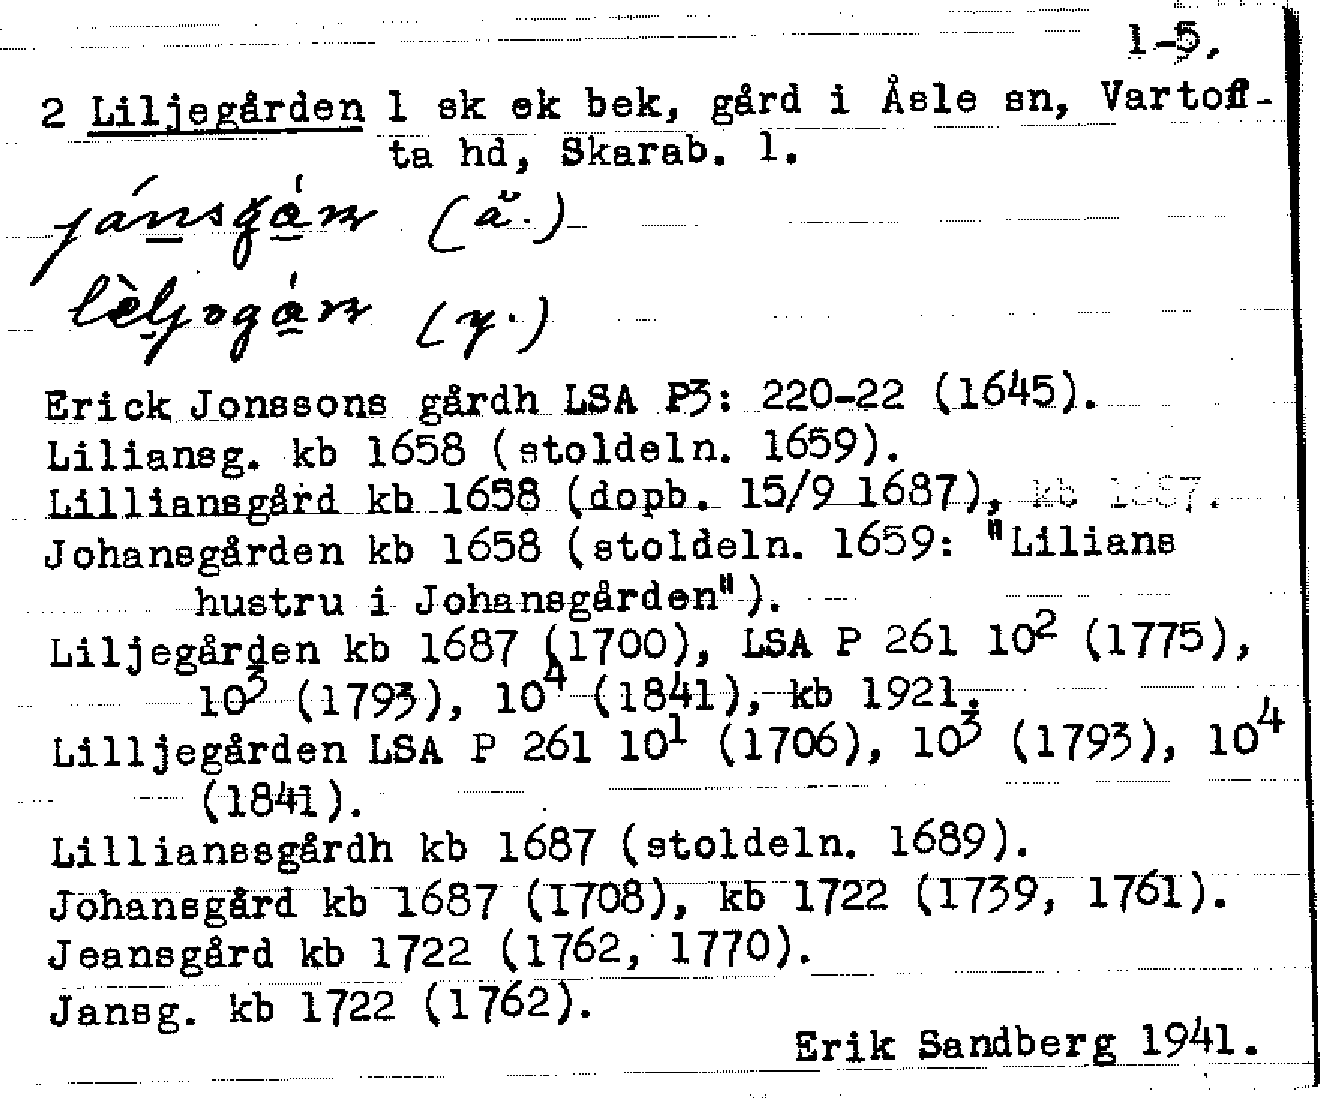 1-5.
2 Liljegården 1 sk ek bek, gård i Åsle sn, Vartoff-
ta hd, Skarab. l.
(ä.)
(y.)
Erick Jonssons gårdh LSA P3: 220-22 (1645).
Liliansg. kb 1658 (stoldeln. 1659).
Lilliansgård kb 1658 (dopb. 15/9 1687), kb 1687.
Johansgården kb 1658 (stoldeln. 1659: "Lilians
hustru i Johansgården").
Liljegården kb 1687 (1700), LSA P 261 10² (1775),
10³ (1793), 10⁴ (1841), kb 1921.
Lilljegården LSA P 261 10¹ (1706), 10³ (1793), 10⁴
(1841).
Lillianssgårdh kb 1687 (stoldeln. 1689).
Johansgård kb 1687 (1708), kb 1722 (1739, 1761).
Jeansgård kb 1722 (1762, 1770).
Jansg. kb 1722 (1762).
Erik Sandberg 1941.